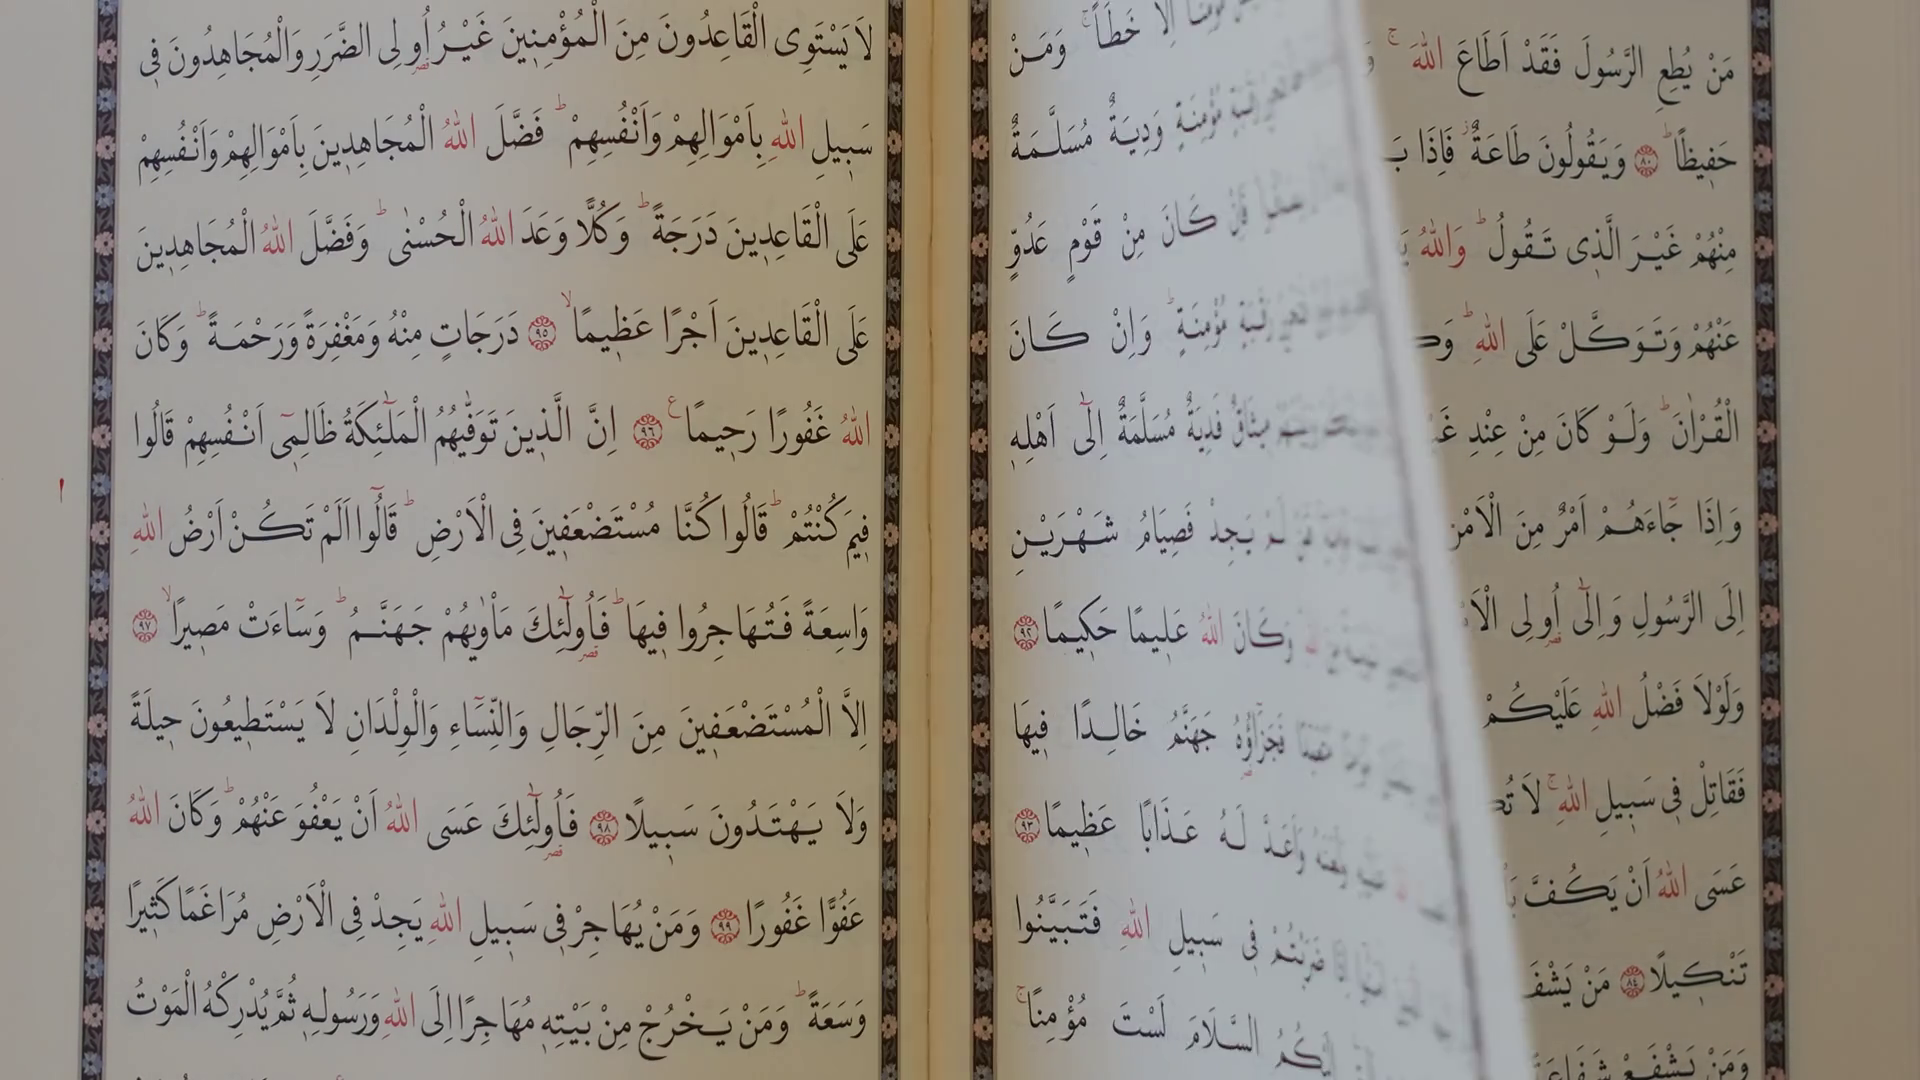 مَنْ يُطِعِ الرَّسُولَ فَقَدْ اَطَاعَ اللّٰهَ ۚ
حَفٖيظاً ؕ ﴿٨٠﴾ وَيَقُولُونَ طَاعَةٌ ؗ فَاِذَا
مِنْهُمْ غَيْرَ الَّذٖى تَقُولُ ؕ وَاللّٰهُ
عَنْهُمْ وَتَوَكَّلْ عَلَى اللّٰهِ ؕ
الْقُرْاٰنَ ؕ وَلَوْ كَانَ مِنْ عِنْدِ
وَاِذَا جَٓاءَهُمْ اَمْرٌ مِنَ الْاَمْنِ
اِلَى الرَّسُولِ وَاِلٰٓى اُو۬لِى
وَلَوْلَا فَضْلُ اللّٰهِ عَلَيْكُمْ
فَقَاتِلْ فٖى سَبٖيلِ اللّٰهِ ۚ لَا
عَسَى اللّٰهُ اَنْ يَكُفَّ
تَنْكٖيلًا ﴿٨٤﴾ مَنْ يَشْفَعْ
وَمَنْ يَشْفَعْ شَفَاعَةً
خَطَـًٔا ۚ وَمَنْ
مُؤْمِنَةٍ وَدِيَةٌ مُسَلَّمَةٌ
فَاِنْ كَانَ مِنْ قَوْمٍ عَدُوٍّ
رَقَبَةٍ مُؤْمِنَةٍ ؕ وَاِنْ كَانَ
مٖيثَاقٌ فَدِيَةٌ مُسَلَّمَةٌ اِلٰٓى اَهْلِهٖ
لَمْ يَجِدْ فَصِيَامُ شَهْرَيْنِ
وَكَانَ اللّٰهُ عَلٖيمًا حَكٖيمًا ﴿٩٢﴾
فَجَزَٓاؤُ۬هُ جَهَنَّمُ خَالِدًا فٖيهَا
وَلَعَنَهُ وَاَعَدَّ لَهُ عَذَابًا عَظٖيمًا ﴿٩٣﴾
ضَرَبْتُمْ فٖى سَبٖيلِ اللّٰهِ فَتَبَيَّنُوا
اِلَيْكُمُ السَّلَامَ لَسْتَ مُؤْمِنًا ۚ
لَا يَسْتَوِى الْقَاعِدُونَ مِنَ الْمُؤْمِنٖينَ غَيْرُ اُو۬لِى الضَّرَرِ وَالْمُجَاهِدُونَ فٖى
سَبٖيلِ اللّٰهِ بِاَمْوَالِهِمْ وَاَنْفُسِهِمْ ؕ فَضَّلَ اللّٰهُ الْمُجَاهِدٖينَ بِاَمْوَالِهِمْ وَاَنْفُسِهِمْ
عَلَى الْقَاعِدٖينَ دَرَجَةً ؕ وَكُلًّا وَعَدَ اللّٰهُ الْحُسْنٰى ؕ وَفَضَّلَ اللّٰهُ الْمُجَاهِدٖينَ
عَلَى الْقَاعِدٖينَ اَجْرًا عَظٖيمًا ۙ ﴿٩٥﴾ دَرَجَاتٍ مِنْهُ وَمَغْفِرَةً وَرَحْمَةً ؕ وَكَانَ
اللّٰهُ غَفُورًا رَحٖيمًا ࣖ ﴿٩٦﴾ اِنَّ الَّذٖينَ تَوَفّٰيهُمُ الْمَلٰٓئِكَةُ ظَالِمٖٓى اَنْفُسِهِمْ قَالُوا
فٖيمَ كُنْتُمْ ؕ قَالُوا كُنَّا مُسْتَضْعَفٖينَ فِى الْاَرْضِ ؕ قَالُٓوا اَلَمْ تَكُنْ اَرْضُ اللّٰهِ
وَاسِعَةً فَتُهَاجِرُوا فٖيهَا ؕ فَاُو۬لٰٓئِكَ مَاْوٰيهُمْ جَهَنَّمُ ؕ وَسَٓاءَتْ مَصٖيرًا ۙ ﴿٩٧﴾
اِلَّا الْمُسْتَضْعَفٖينَ مِنَ الرِّجَالِ وَالنِّسَٓاءِ وَالْوِلْدَانِ لَا يَسْتَطٖيعُونَ حٖيلَةً
وَلَا يَهْتَدُونَ سَبٖيلًا ﴿٩٨﴾ فَاُو۬لٰٓئِكَ عَسَى اللّٰهُ اَنْ يَعْفُوَ عَنْهُمْ ؕ وَكَانَ اللّٰهُ
عَفُوًّا غَفُورًا ﴿٩٩﴾ وَمَنْ يُهَاجِرْ فٖى سَبٖيلِ اللّٰهِ يَجِدْ فِى الْاَرْضِ مُرَاغَمًا كَثٖيرًا
وَسَعَةً ؕ وَمَنْ يَخْرُجْ مِنْ بَيْتِهٖ مُهَاجِرًا اِلَى اللّٰهِ وَرَسُولِهٖ ثُمَّ يُدْرِكْهُ الْمَوْتُ